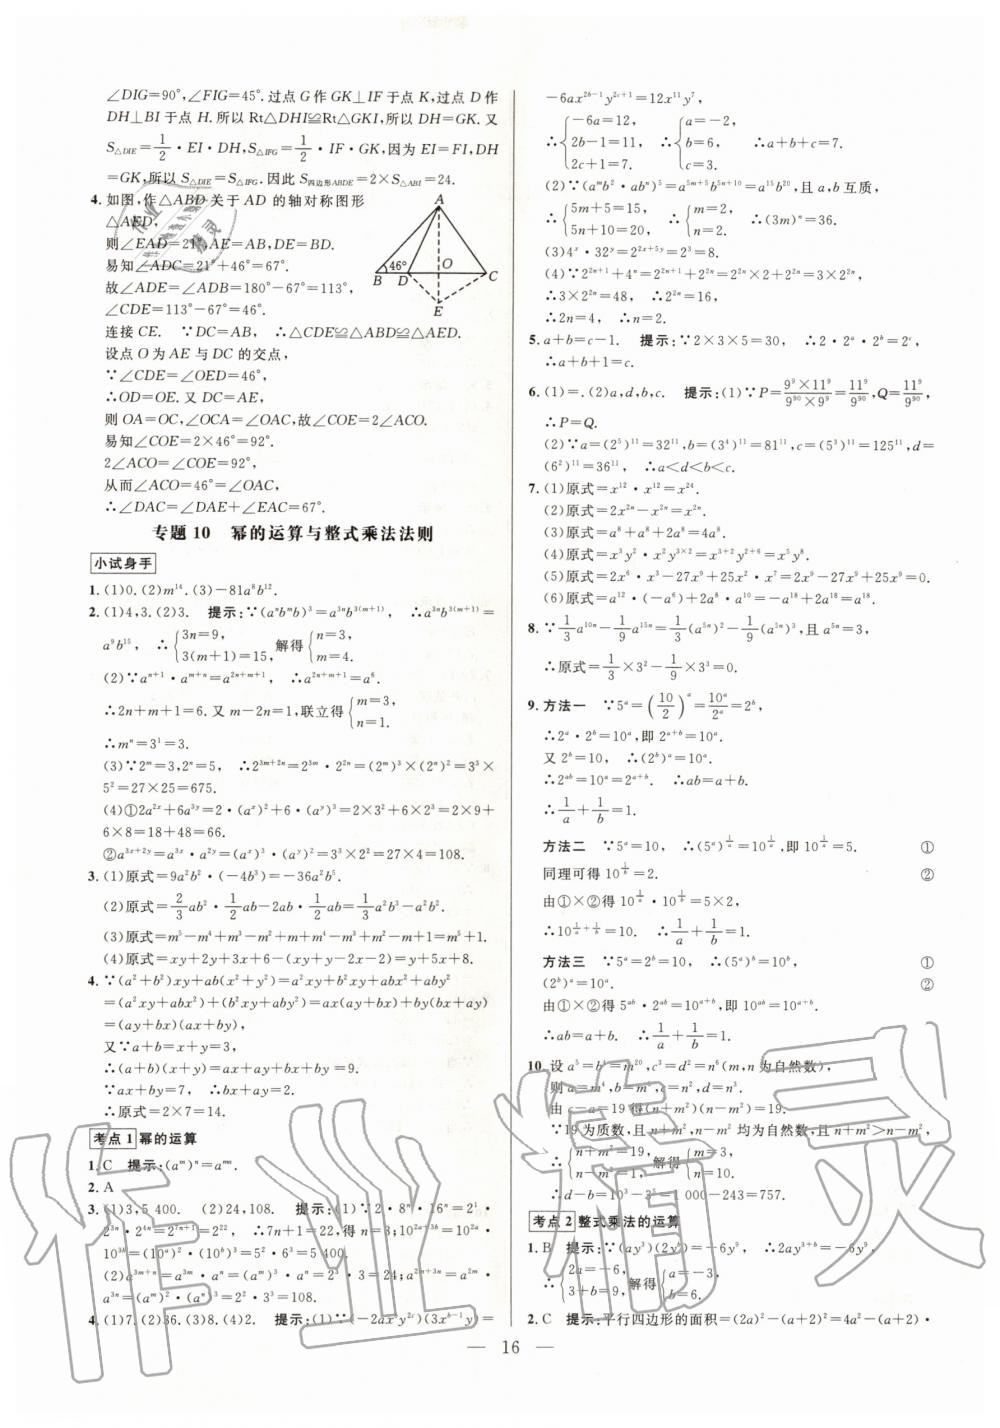 ∠DIG=90°,∠FIG=45°.过点G作GK⊥IF于点K,过点D作
DH⊥BI于点H.所以Rt△DHI≌Rt△GKI,所以DH=GK.又
S△DIE=1/2·EI·DH,S△IFG=1/2·IF·GK,因为EI=FI,DH
=GK,所以S△DIE=S△IFG.因此S四边形ABDE=2×S△ABI=24.
4. 如图,作△ABD关于AD的轴对称图形
△AED,
则∠EAD=21°,AE=AB,DE=BD.
易知∠ADC=21°+46°=67°.
故∠ADE=∠ADB=180°-67°=113°,
∠CDE=113°-67°=46°.
连接CE. ∵DC=AB, ∴△CDE≌△ABD≌△AED.
设点O为AE与DC的交点,
∵∠CDE=∠OED=46°,
∴OD=OE.又DC=AE,
则OA=OC,∠OCA=∠OAC,故∠COE=2∠ACO.
易知∠COE=2×46°=92°.
2∠ACO=∠COE=92°,
从而∠ACO=46°=∠OAC,
∴∠DAC=∠DAE+∠EAC=67°.
A
46°
O
B D C
E
专题10 幂的运算与整式乘法法则
小试身手
1. (1)0.(2)m^14.(3)-81a^8b^12.
2. (1)4,3.(2)3. 提示:∵(a^n b^m b)^3=a^{3n}b^{3(m+1)}, ∴a^{3n}b^{3(m+1)}=
a^9b^15, ∴{3n=9, 3(m+1)=15, 解得{n=3, m=4.
(2)∵a^{n+1}·a^{m+n}=a^{2n+m+1}, ∴a^{2n+m+1}=a^6.
∴2n+m+1=6.又m-2n=1,联立得{m=3, n=1.
∴m^n=3^1=3.
(3)∵2^m=3,2^n=5, ∴2^{3m+2n}=2^{3m}·2^{2n}=(2^m)^3×(2^n)^2=3^3×
5^2=27×25=675.
(4)①2a^{2x}+6a^{3y}=2·(a^x)^2+6·(a^y)^3=2×3^2+6×2^3=2×9+
6×8=18+48=66.
②a^{3x+2y}=a^{3x}·a^{2y}=(a^x)^3·(a^y)^2=3^3×2^2=27×4=108.
3. (1)原式=9a^2b^2·(-4b^3)=-36a^2b^5.
(2)原式=2/3ab^2·1/2ab-2ab·1/2ab=1/3a^2b^3-a^2b^2.
(3)原式=m^5-m^4+m^3-m^2+m+m^4-m^3+m^2-m+1=m^5+1.
(4)原式=xy+2y+3x+6-(xy+y-2x-2)=y+5x+8.
4. ∵(a^2+b^2)xy+ab(x^2+y^2)=a^2xy+b^2xy+abx^2+aby^2
=(a^2xy+abx^2)+(b^2xy+aby^2)=ax(ay+bx)+by(bx+ay)
=(ay+bx)(ax+by),
又∵a+b=x+y=3,
∴(a+b)(x+y)=ax+ay+bx+by=9.
∵ax+by=7, ∴bx+ay=2.
∴原式=2×7=14.
考点1 幂的运算
1. C 提示:(a^m)^n=a^{mn}.
2. A
3. (1)3,5 400. (2)24,108. 提示:(1)∵2·8^n·16^n=2^1·
2^{3n}·2^{4n}=2^{7n+1}=2^22, ∴7n+1=22,得n=3;10^{2a+3b}=10^{2a}·
10^{3b}=(10^a)^2·(10^b)^3=5 400.
(2)a^{3m+n}=a^{3m}·a^n=(a^m)^3·a^n=2^3·3=24;a^{2m+3n}=a^{2m}·
a^{3n}=(a^m)^2·(a^n)^3=108.
4. (1)7.(2)36.(3)8.(4)2. 提示:(1)∵(-2ax^by^{2c})(3x^{b-1}y)=
-6ax^{2b-1}y^{2c+1}=12x^11y^7,
∴{-6a=12, 2b-1=11, 2c+1=7. ∴{a=-2, b=6, c=3. ∴a+b+c=7.
(2)∵(a^mb^2·ab^n)^5=a^{5m+5}b^{5n+10}=a^15b^20,且a,b互质,
∴{5m+5=15, 5n+10=20, ∴{m=2, n=2. ∴(3m)^n=36.
(3)4^x·32^y=2^{2x+5y}=2^3=8.
(4)∵2^{2n+1}+4^n=2^{2n+1}+2^{2n}=2^{2n}×2+2^{2n}=3×2^{2n},
∴3×2^{2n}=48, ∴2^{2n}=16,
∴2n=4, ∴n=2.
5. a+b=c-1. 提示:∵2×3×5=30, ∴2·2^a·2^b=2^c,
∴a+b+1=c.
6. (1)=.(2)a,d,b,c. 提示:(1)∵P=(9^9×11^9)/(9^90×9^9)=11^9/9^90,Q=11^9/9^90,
∴P=Q.
(2)∵a=(2^5)^11=32^11,b=(3^4)^11=81^11,c=(5^3)^11=125^11,d=
(6^2)^11=36^11, ∴a<d<b<c.
7. (1)原式=x^12·x^12=x^24.
(2)原式=2x^{2n}-x^{2n}=x^{2n}.
(3)原式=a^8+a^8+2a^8=4a^8.
(4)原式=x^3y^2·x^{2×3}y^{2×3}=x^{3+2×3}y^{2+6}=x^9y^8.
(5)原式=2x^6·x^3-27x^9+25x^2·x^7=2x^9-27x^9+25x^9=0.
(6)原式=a^12·(-a^6)+2a^8·a^10=-a^18+2a^18=a^18.
8. ∵1/3a^{10n}-1/9a^{15n}=1/3(a^{5n})^2-1/9(a^{5n})^3,且a^{5n}=3,
∴原式=1/3×3^2-1/9×3^3=0.
9. 方法一 ∵5^a=(10/2)^a=10^a/2^a=2^b,
∴2^a·2^b=10^a,即2^{a+b}=10^a.
又2^b=10, ∴(2^b)^a=10^a.
∴2^{ab}=10^a=2^{a+b}. ∴ab=a+b.
∴1/a+1/b=1.
方法二 ∵5^a=10, ∴(5^a)^{1/a}=10^{1/a},即10^{1/a}=5. ①
同理可得10^{1/b}=2. ②
由①×②得10^{1/a}·10^{1/b}=5×2,
∴10^{1/a+1/b}=10. ∴1/a+1/b=1.
方法三 ∵5^a=2^b=10, ∴(5^a)^b=10^b, ①
(2^b)^a=10^a. ②
由①×②得5^{ab}·2^{ab}=10^{a+b},即10^{ab}=10^{a+b}.
∴ab=a+b. ∴1/a+1/b=1.
10. 设a^5=b^4=m^20,c^3=d^2=n^6(m,n为自然数),
则a=m^4,b=m^5,c=n^2,d=n^3.
由c-a=19得(n+m^2)(n-m^2)=19.
∵19为质数,且n+m^2,n-m^2为自然数,且n+m^2>n-m^2,
∴{n+m^2=19, n-m^2=1, 解得{m=3, n=10.
∴d-b=10^3-3^5=1 000-243=757.
考点2 整式乘法的运算
1. B 提示:∵(ay^3)(2y^b)=-6y^9, ∴2ay^{3+b}=-6y^9,
∴{2a=-6, 3+b=9, 解得{a=-3, b=6.
2. C 提示:平行四边形的面积=(2a)^2-(a+2)^2=4a^2-(a+2)·
16
作业精灵